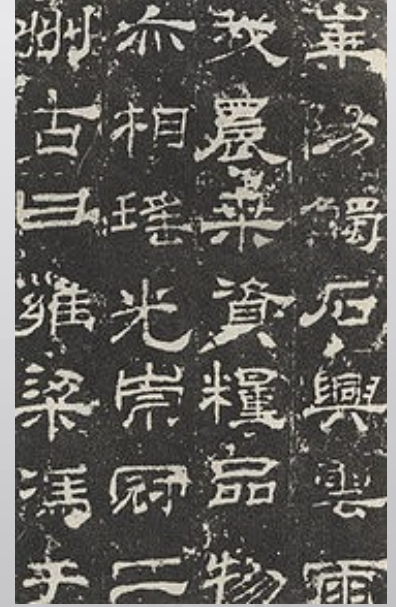 華陽觸石興雲雨
我農桒資糧品物
亦相瑤光崇冠二
州古曰雍梁馮于